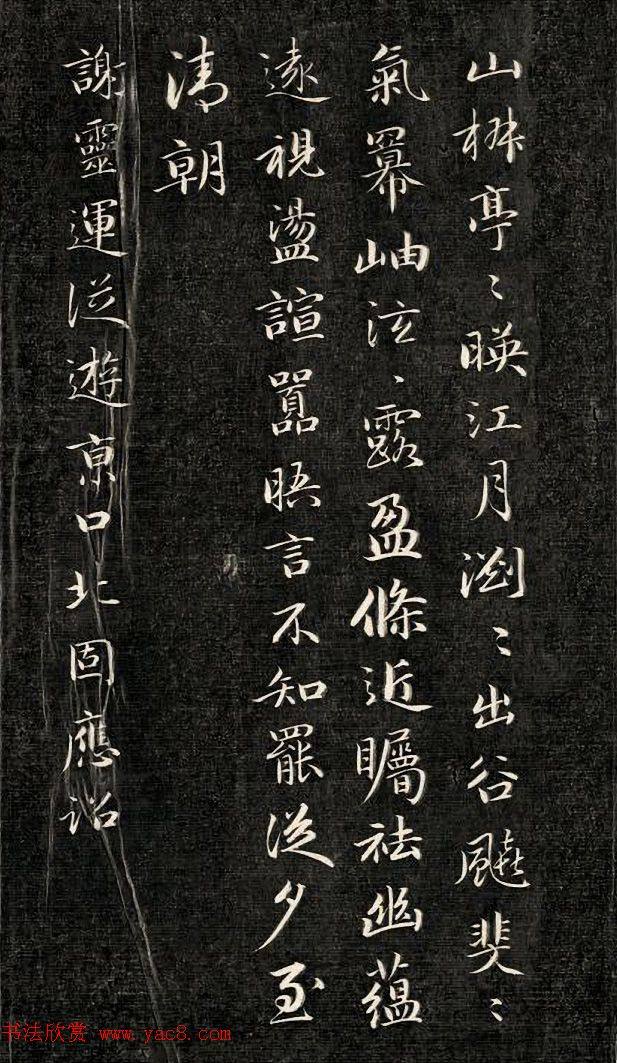 山椒亭〻暎江月瀏〻出谷飈斐〻
氣冪岫泫〻露盈條近矚祛幽蘊
遠視盪諠嚣晤言不知罷從夕至
清朝
謝靈運從遊京口北固應詔
书法欣赏 www.yac8.com